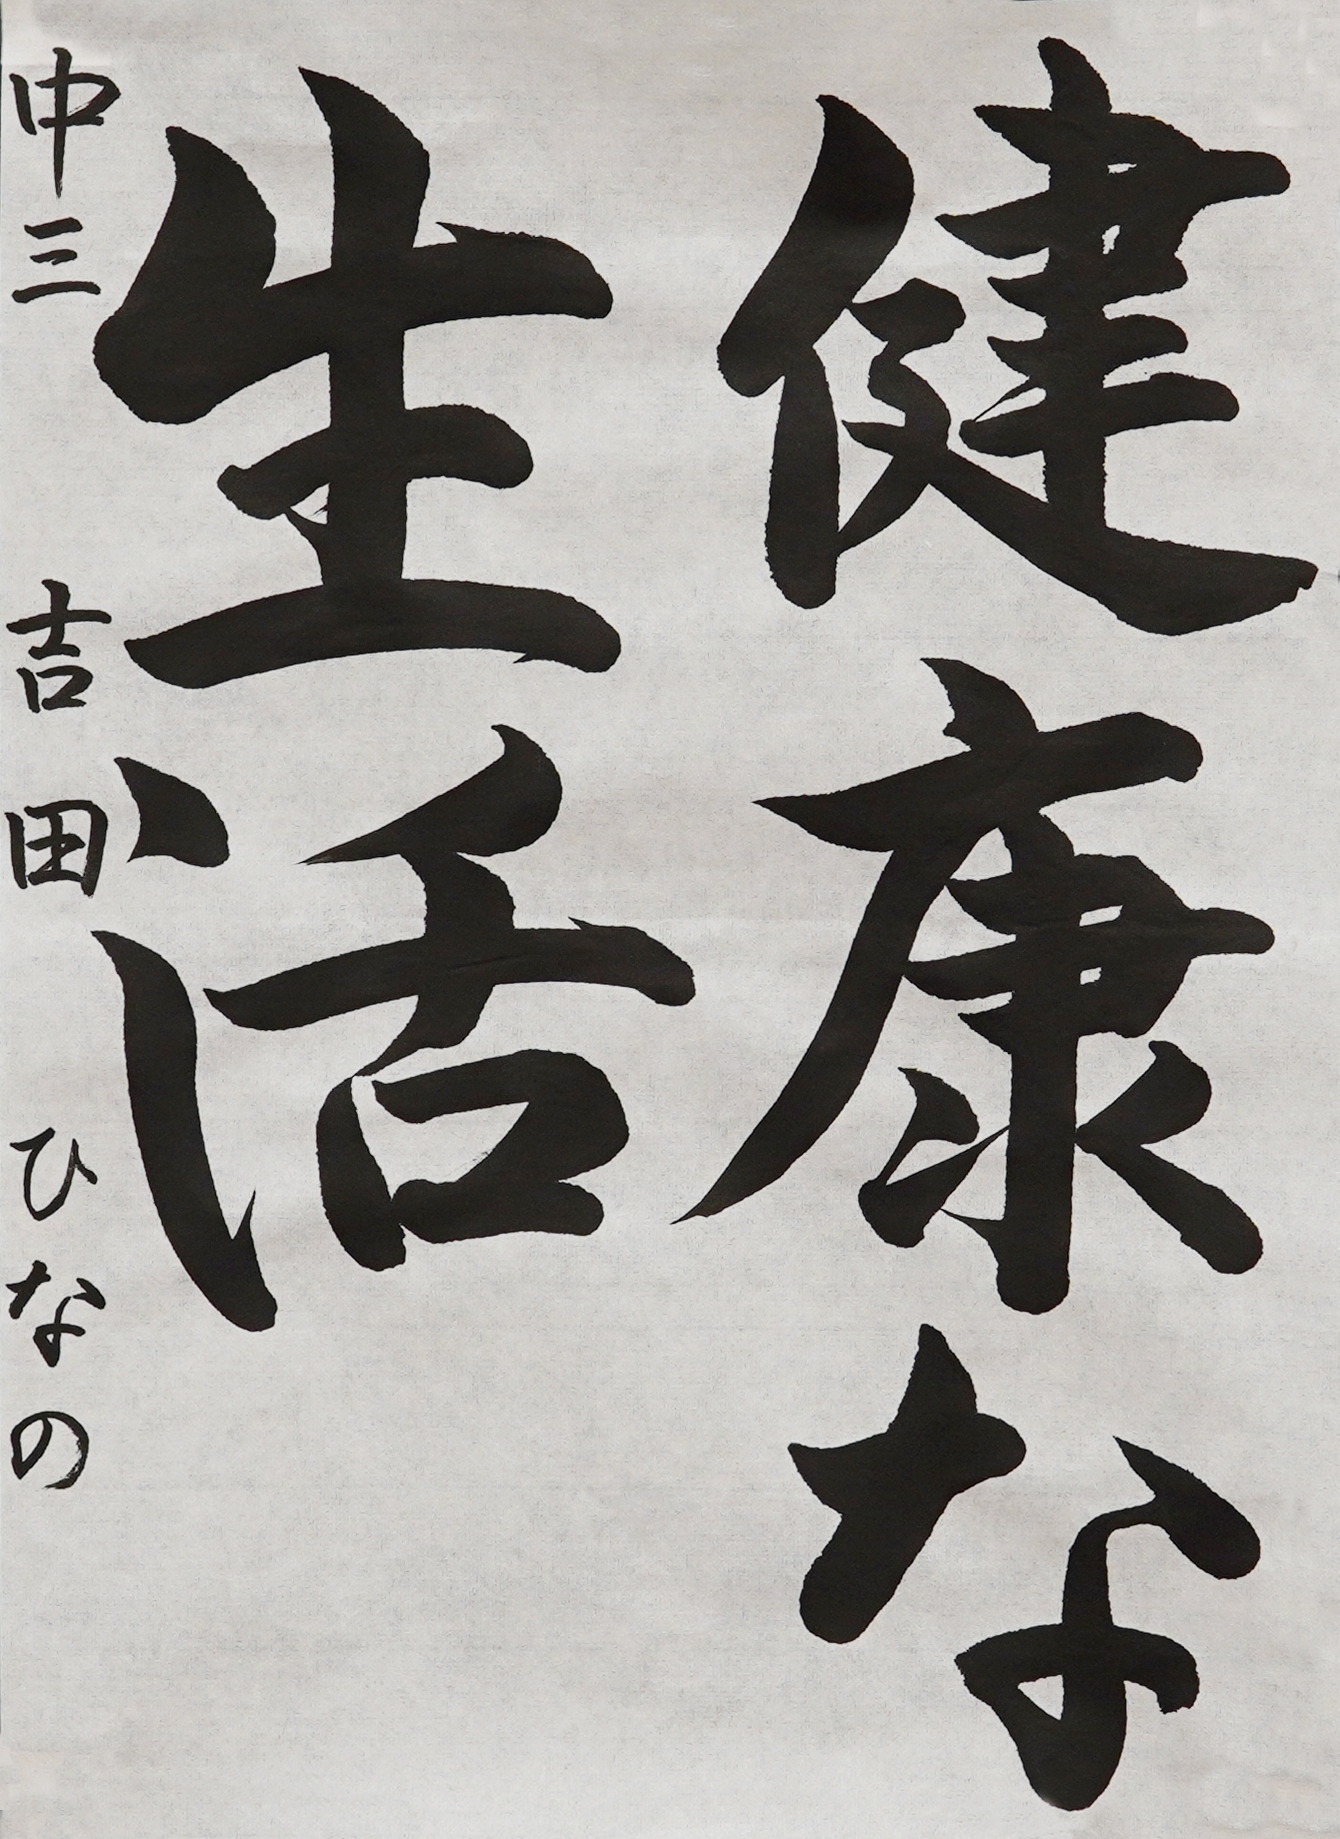 健康な
生活
中三 吉田 ひなの